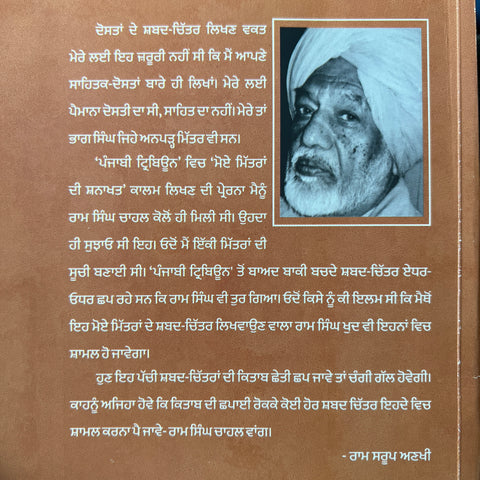 ਦੋਸਤਾਂ ਦੇ ਸ਼ਬਦ-ਚਿੱਤਰ ਲਿਖਣ ਵਕਤ
ਮੇਰੇ ਲਈ ਇਹ ਜ਼ਰੂਰੀ ਨਹੀਂ ਸੀ ਕਿ ਮੈਂ ਆਪਣੇ
ਸਾਹਿਤਕ-ਦੋਸਤਾਂ ਬਾਰੇ ਹੀ ਲਿਖਾਂ। ਮੇਰੇ ਲਈ
ਪੈਮਾਨਾ ਦੋਸਤੀ ਦਾ ਸੀ, ਸਾਹਿਤ ਦਾ ਨਹੀਂ। ਮੇਰੇ ਤਾਂ
ਭਾਗ ਸਿੰਘ ਜਿਹੇ ਅਨਪੜ੍ਹ ਮਿੱਤਰ ਵੀ ਸਨ।
'ਪੰਜਾਬੀ ਟ੍ਰਿਬਿਊਨ' ਵਿਚ 'ਮੋਏ ਮਿੱਤਰਾਂ
ਦੀ ਸ਼ਨਾਖਤ' ਕਾਲਮ ਲਿਖਣ ਦੀ ਪ੍ਰੇਰਨਾ ਮੈਨੂੰ
ਰਾਮ ਸਿੰਘ ਚਾਹਲ ਕੋਲੋਂ ਹੀ ਮਿਲੀ ਸੀ। ਉਹਦਾ
ਹੀ ਸੁਝਾਓ ਸੀ ਇਹ। ਓਦੋਂ ਮੈਂ ਇੱਕੀ ਮਿੱਤਰਾਂ ਦੀ
ਸੂਚੀ ਬਣਾਈ ਸੀ। 'ਪੰਜਾਬੀ ਟ੍ਰਿਬਿਊਨ' ਤੋਂ ਬਾਅਦ ਬਾਕੀ ਬਚਦੇ ਸ਼ਬਦ-ਚਿੱਤਰ ਏਧਰ-
ਓਧਰ ਛਪ ਰਹੇ ਸਨ ਕਿ ਰਾਮ ਸਿੰਘ ਵੀ ਤੁਰ ਗਿਆ। ਓਦੋਂ ਕਿਸੇ ਨੂੰ ਕੀ ਇਲਮ ਸੀ ਕਿ ਮੈਥੋਂ
ਇਹ ਮੋਏ ਮਿੱਤਰਾਂ ਦੇ ਸ਼ਬਦ-ਚਿੱਤਰ ਲਿਖਵਾਉਣ ਵਾਲਾ ਰਾਮ ਸਿੰਘ ਖੁਦ ਵੀ ਇਹਨਾਂ ਵਿਚ
ਸ਼ਾਮਲ ਹੋ ਜਾਵੇਗਾ।
ਹੁਣ ਇਹ ਪੱਚੀ ਸ਼ਬਦ-ਚਿੱਤਰਾਂ ਦੀ ਕਿਤਾਬ ਛੇਤੀ ਛਪ ਜਾਵੇ ਤਾਂ ਚੰਗੀ ਗੱਲ ਹੋਵੇਗੀ।
ਕਾਹਨੂੰ ਅਜਿਹਾ ਹੋਵੇ ਕਿ ਕਿਤਾਬ ਦੀ ਛਪਾਈ ਰੋਕਕੇ ਕੋਈ ਹੋਰ ਸ਼ਬਦ ਚਿੱਤਰ ਇਹਦੇ ਵਿਚ
ਸ਼ਾਮਲ ਕਰਨਾ ਪੈ ਜਾਵੇ- ਰਾਮ ਸਿੰਘ ਚਾਹਲ ਵਾਂਗ।
- ਰਾਮ ਸਰੂਪ ਅਣਖੀ